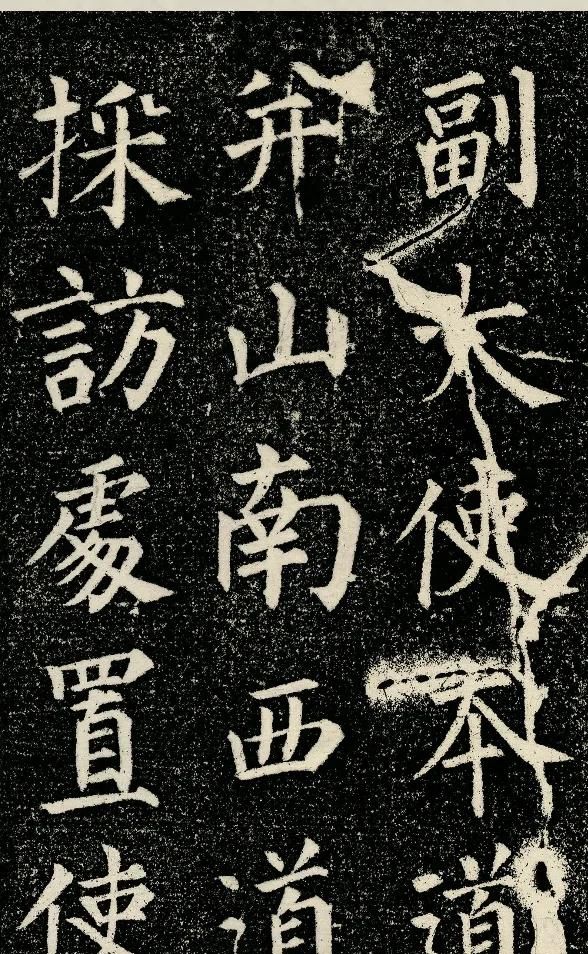 副大使本道
并山南西道
採訪處置使